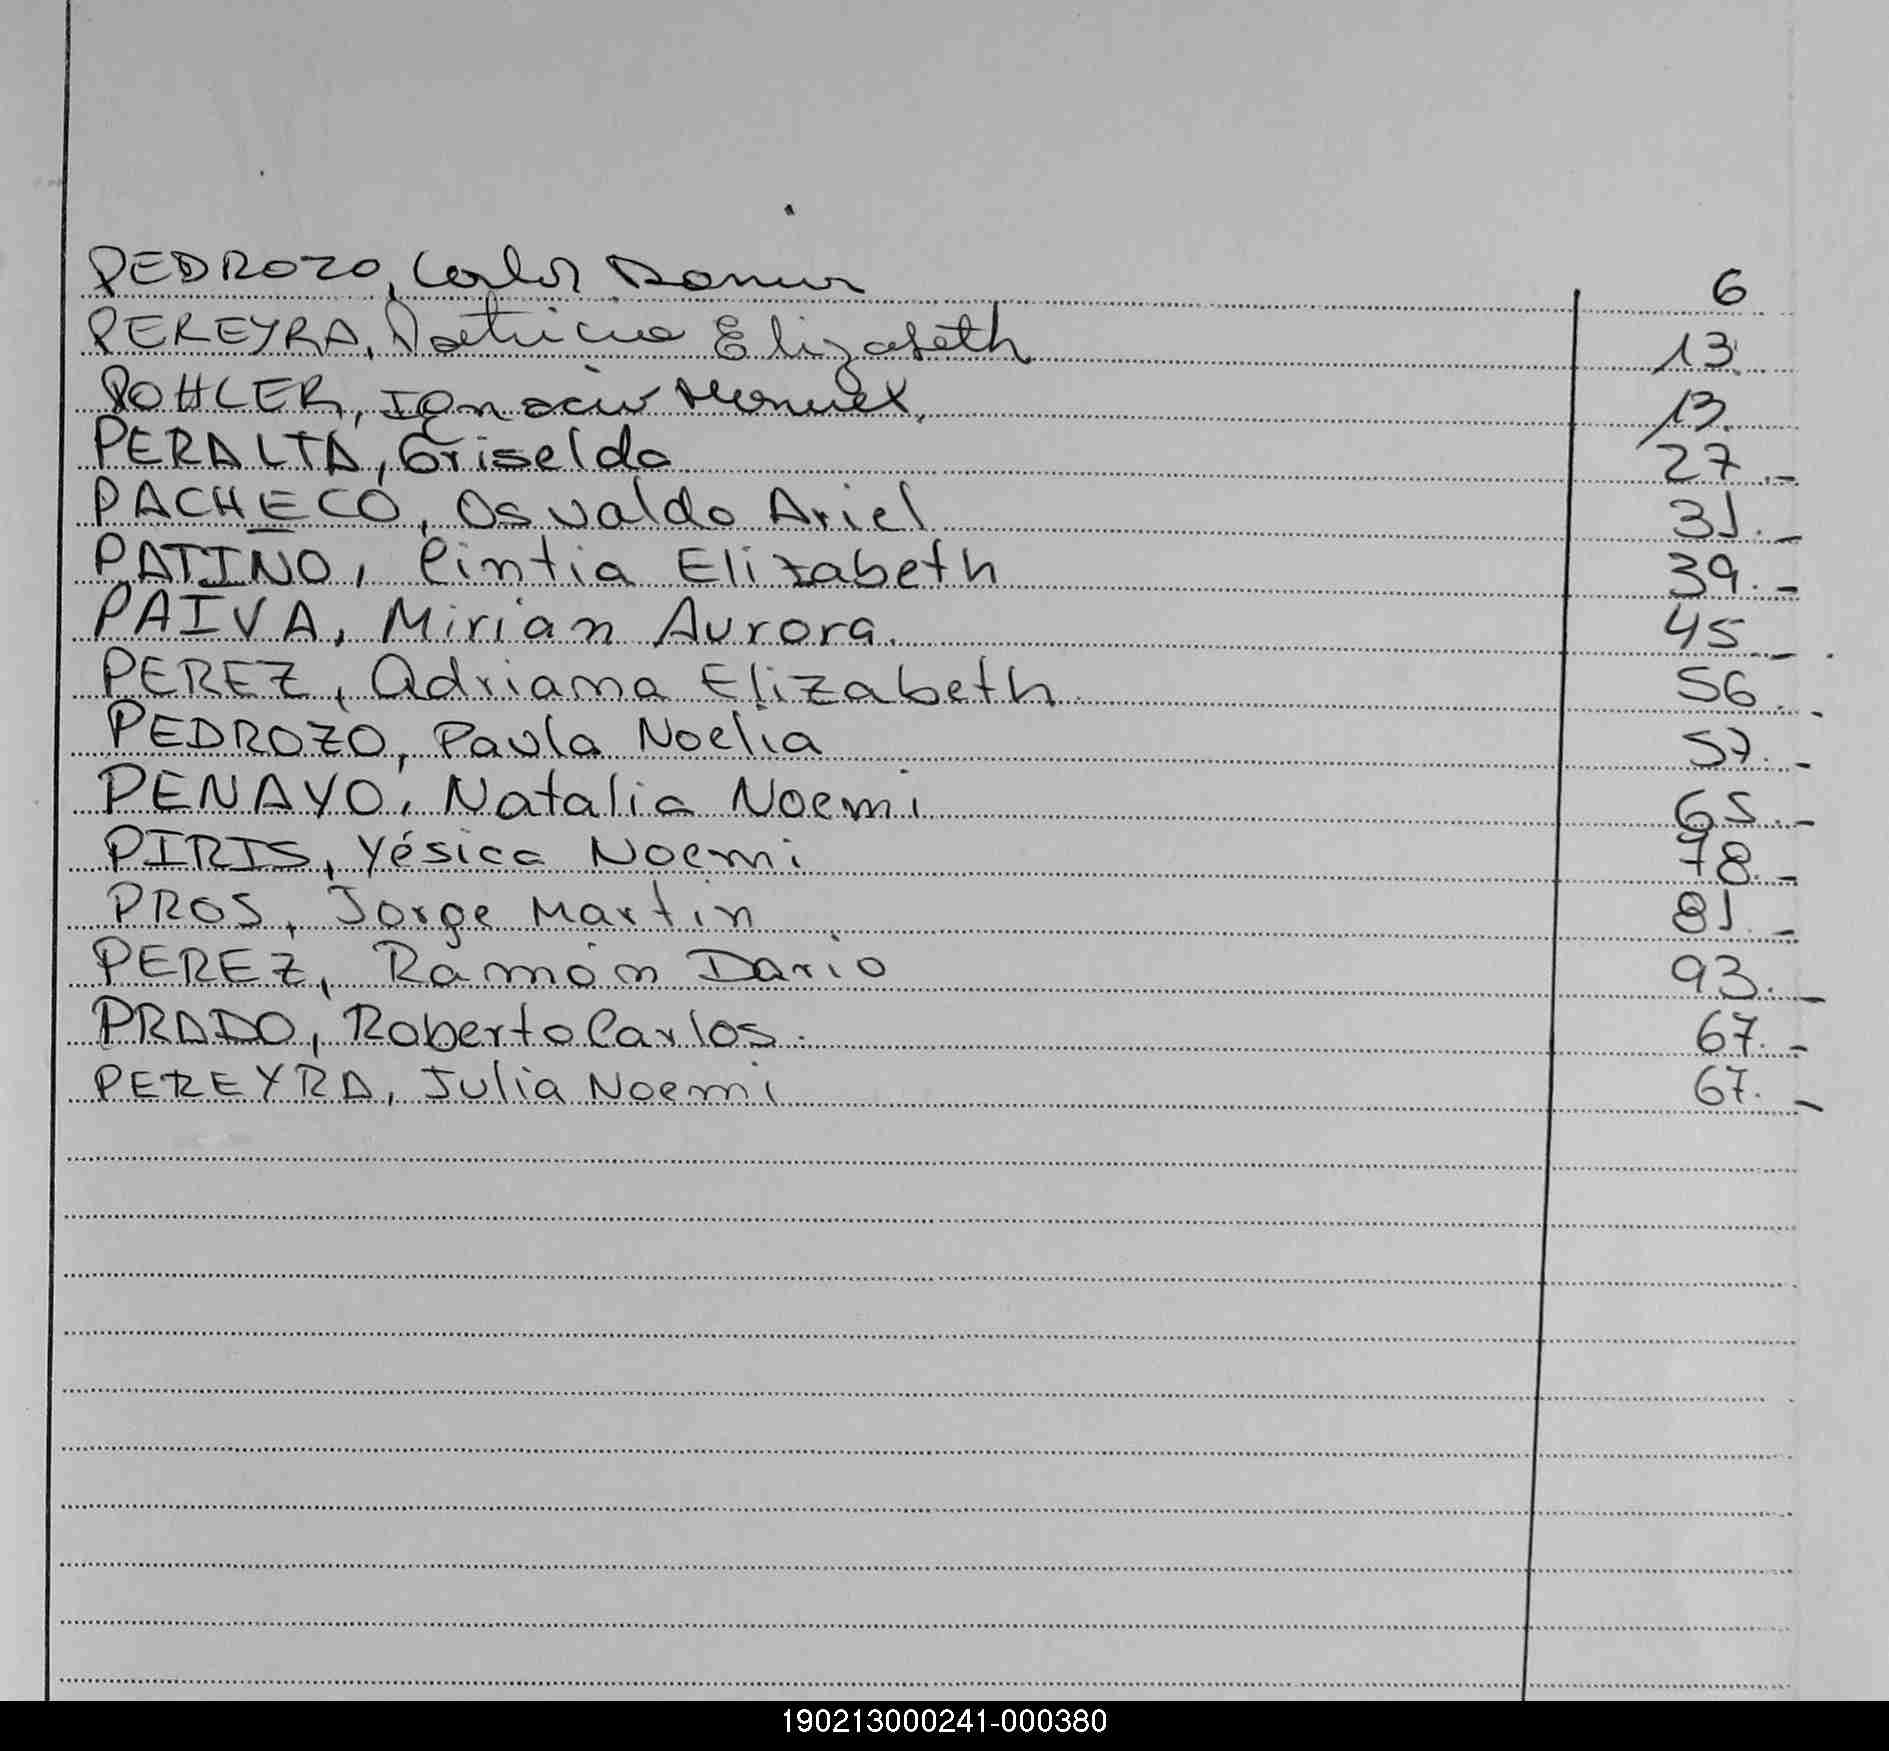 PEDROZO, Carlos Ramon 6
PEREYRA, Patricia Elizabeth 13.
POHLER, Ignacio Manuel. 13.
PERALTA, Griselda 27.-
PACHECO, Osvaldo Ariel 31.-
PATINO, Cintia Elizabeth 39.-
PAIVA, Mirian Aurora. 45.-
PEREZ, Adriana Elizabeth 56.-
PEDROZO, Paula Noelia 57.-
PENAYO, Natalia Noemi 65.-
PIRIS, Yésica Noemi 78.-
PROS, Jorge Martin 81.-
PEREZ, Ramón Dario 93.-
PRADO, Roberto Carlos. 67.-
PEREYRA, Julia Noemi 67.-
190213000241-000380